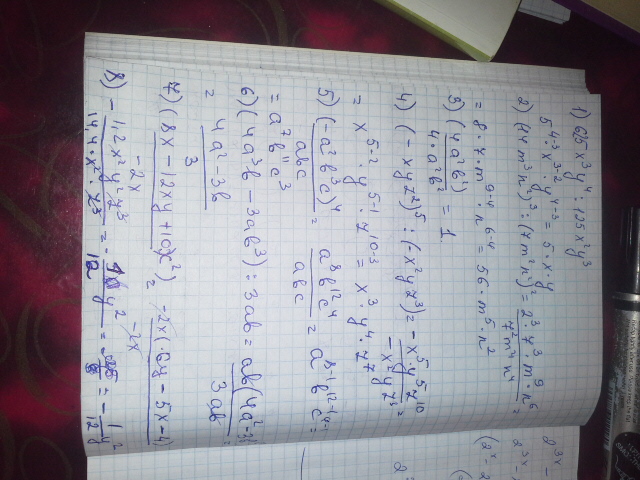 1) 625x³y⁴ : 125x²y³
5^(4-3) · x^(3-2) · y^(4-3) = 5 · x · y
2) (14m³n²)³ : (7m²n²)² = (2³ · 7³ · m⁹ · n⁶)/(7² m⁴ n⁴) =
= 8 · 7 · m^(9-4) · n^(6-4) = 56 · m⁵ · n²
3) (4a²b²)/(4 · a²b²) = 1
4) (-xyz²)⁵ : (-x²yz³) = (-x⁵ · y⁵z¹⁰)/(-x²yz³) =
= x^(5-2) · y^(5-1) · z^(10-3) = x³ · y⁴ · z⁷
5) (-a²b³c)⁴/(abc) = (a⁸b¹²c⁴)/(abc) = a^(8-1) b^(12-1) c^(4-1) =
= a⁷b¹¹c³
6) (4a³b - 3ab³) : 3ab = ab(4a²-3)/(3ab) =
= (4a² - 3b)/3
7) (8x - 12xy + 10x²)/(-2x) = -2x(6y - 5x - 4)/(-2x)
8)